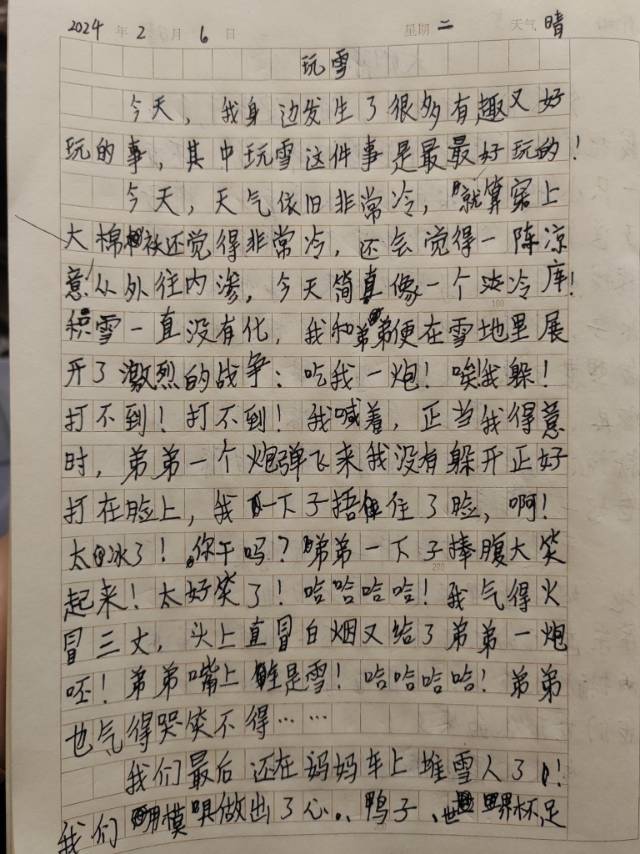 2024年2月6日 星期二 天气晴
玩雪
今天，我身边发生了很多有趣又好
玩的事，其中玩雪这件事是最最好玩的！
今天，天气依旧非常冷，就算穿上
大棉袄还觉得非常冷，还会觉得一阵凉
意从外往内渗，今天简真像一个冷库！
积雪一直没有化，我和弟弟便在雪地里展
开了激烈的战争：吃我一炮！唉我躲！
打不到！打不到！我喊着，正当我得意
时，弟弟一个炮弹飞来我没有躲开正好
打在脸上，我一下子捂住了脸，啊！
太冰了！你干吗？弟弟一下子捧腹大笑
起来！太好笑了！哈哈哈哈！我气得火
冒三丈，头上直冒白烟又给了弟弟一炮
呸！弟弟嘴上全是雪！哈哈哈哈！弟弟
也气得哭笑不得……
我们最后还在妈妈车上堆雪人了！
我们用模具做出了心、鸭子、世界杯足